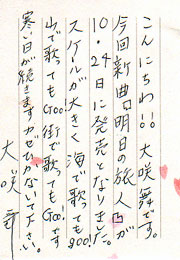 こんにちわ!! 大咲舞です。
今回新曲「明日の旅人」が
10・24日に発売となりました。
スケールが大きく海で歌てもgoo!
山で歌てもGoo!街で歌てもGoo!です
寒い日が続きますカゼひかないで下さい。
大咲